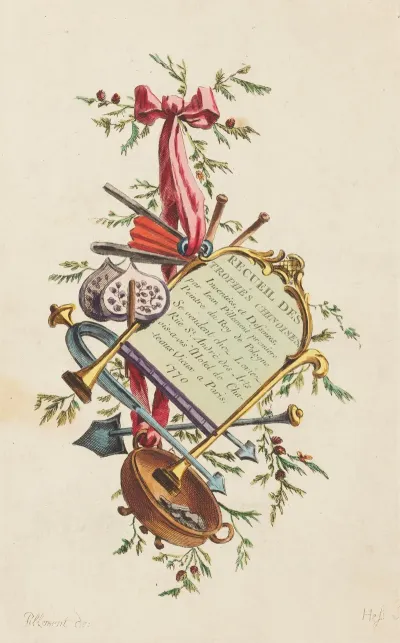 RECUEIL DES
TROPHÉS CHINOISE
Inventées et Dessinées
par Jean Pillement premier
Peintre du Roy de Pologne
Se vendent chez Leviez
Rue St. André des Arts
vis-a-vis l'Hotel de Cha-
teaux-Vieux a Paris.
1770
Pillement de: